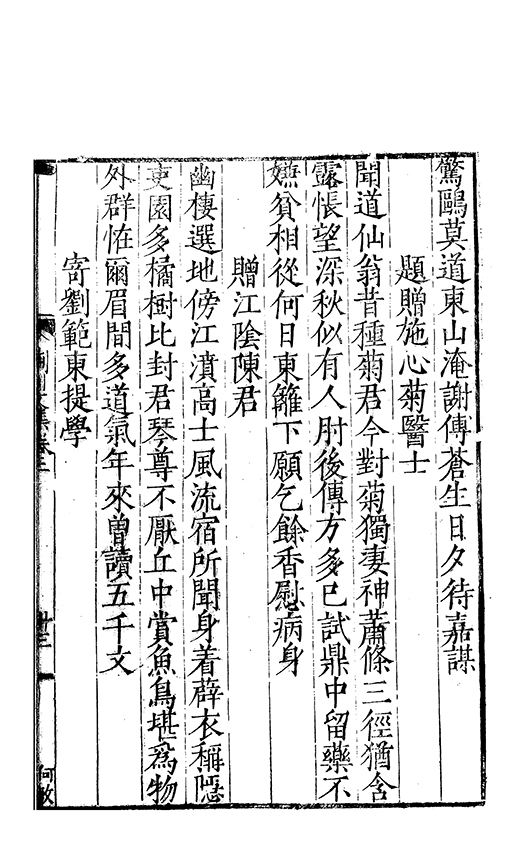 驚鷗莫道東山淹謝傅蒼生日夕待嘉謀
題贈施心菊醫士
聞道仙翁昔種菊君今對菊獨妻神蕭條三徑猶含
露悵望深秋似有人肘後傳方多已試鼎中留藥不
嫌貧相從何日東籬下願乞餘香慰病身
贈江陰陳君
幽棲選地傍江濆高士風流宿所聞身着薜衣稱隠
吏園多橘樹比封君琴尊不厭丘中賞魚鳥堪為物
外群恠爾眉間多道氣年來曾讀五千文
寄劉範東提學
集卷三
十三